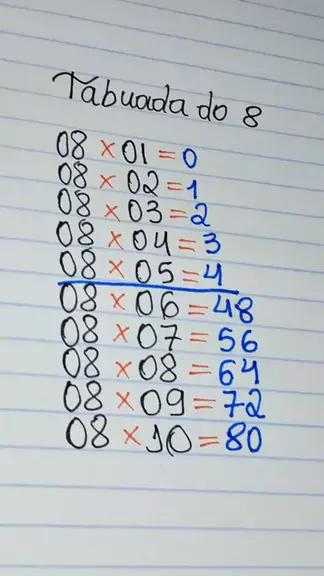 Tabuada do 8
08 × 01 = 0
08 × 02 = 1
08 × 03 = 2
08 × 04 = 3
08 × 05 = 4
08 × 06 = 48
08 × 07 = 56
08 × 08 = 64
08 × 09 = 72
08 × 10 = 80